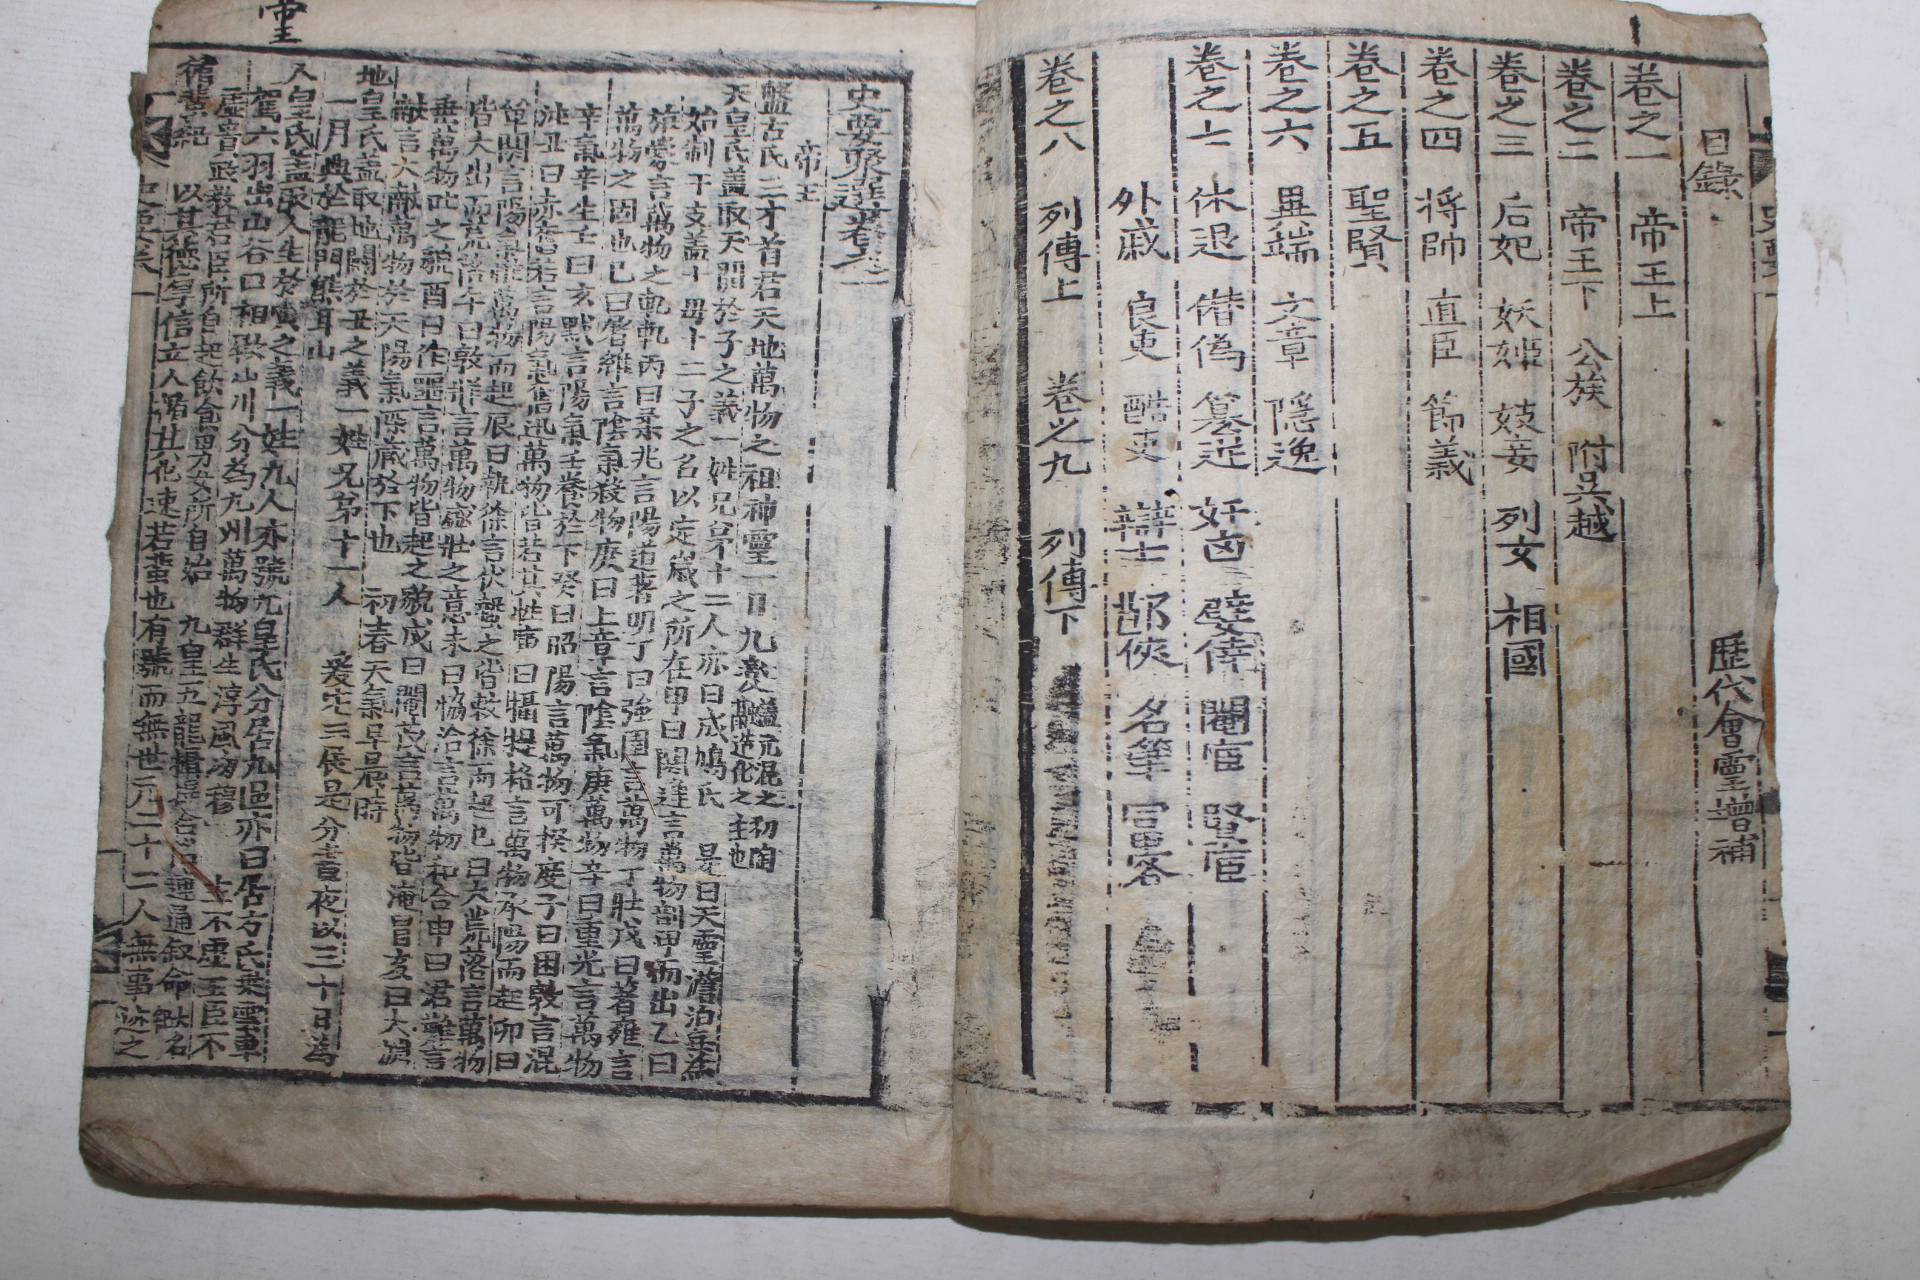 目錄 歷代會靈增補
卷之一 帝王上
卷之二 帝王下 公族 附吳越
卷之三 后妃 妖姬 妓妾 列女 相國
卷之四 將帥 直臣 節義
卷之五 聖賢
卷之六 異端 文章 隱逸
卷之七 休退 僭偽 篡逆 奸凶 嬖倖 閹宦 竪宦
外戚 良吏 酷吏 辯士 名筆 富
卷之八 列傳上 卷之九 列傳下
帝王
史要聚選卷之一
帝王
盤古氏 三才首君天地萬物之祖神靈一日九變 盖元混之初陶
造化之主也
天皇氏 盖取天開於子之義一姓兄弟十二人亦曰成鳩氏 是曰天靈澹泊無為
始制干支盖十母十二子之名以定歲之所在甲曰閼逢言萬物剖甲而出乙曰
旃蒙言萬物之軋軋丙曰柔兆言陽道著明丁曰强圉言萬物丁壯戊曰著雍言
萬物之固也己曰屠維言陰氣殺物庚曰上章言陰氣庚萬物辛曰重光言萬物
辛氣辛生壬曰玄黓言陽氣壬養於下癸曰昭陽言萬物可揆度子曰困敦言混
沌丑曰赤奮若言陽氣奮迅萬物皆若其性寅曰攝提格言萬物承陽而起卯曰
單閼言陽氣推萬物而起辰曰執徐言伏蟄之皆敕徐而起巳曰大荒落言萬物
皆大出而荒落午曰敦牂言萬物盛壯之意未曰恊洽言萬物和合申曰涒灘言
垂萬物吐之貌酉曰作噩言萬物皆起之貌戌曰閹茂言萬物皆淹冒亥曰大淵
獻言大獻萬物於天陽氣深藏於下也 初春天氣早晨時
地皇氏 盖取地闢於丑之義一姓兄弟十一人 爰定三辰是分晝夜以三十日為
一月興於龍門熊耳山
人皇氏 盖取人生於寅之義一姓九人亦號九皇氏分居九區亦曰居方氏乘雲車
駕六羽出山谷口相 山川分為九州萬物群生淳風沕穆 主不虛王臣不
虛貴政教君臣所自起飲食男女所自始 九皇五龍攝提合 連通叙命
循蜚紀 以其德厚信立人 化速若蜚也有號而無世 二十二人無事迹之